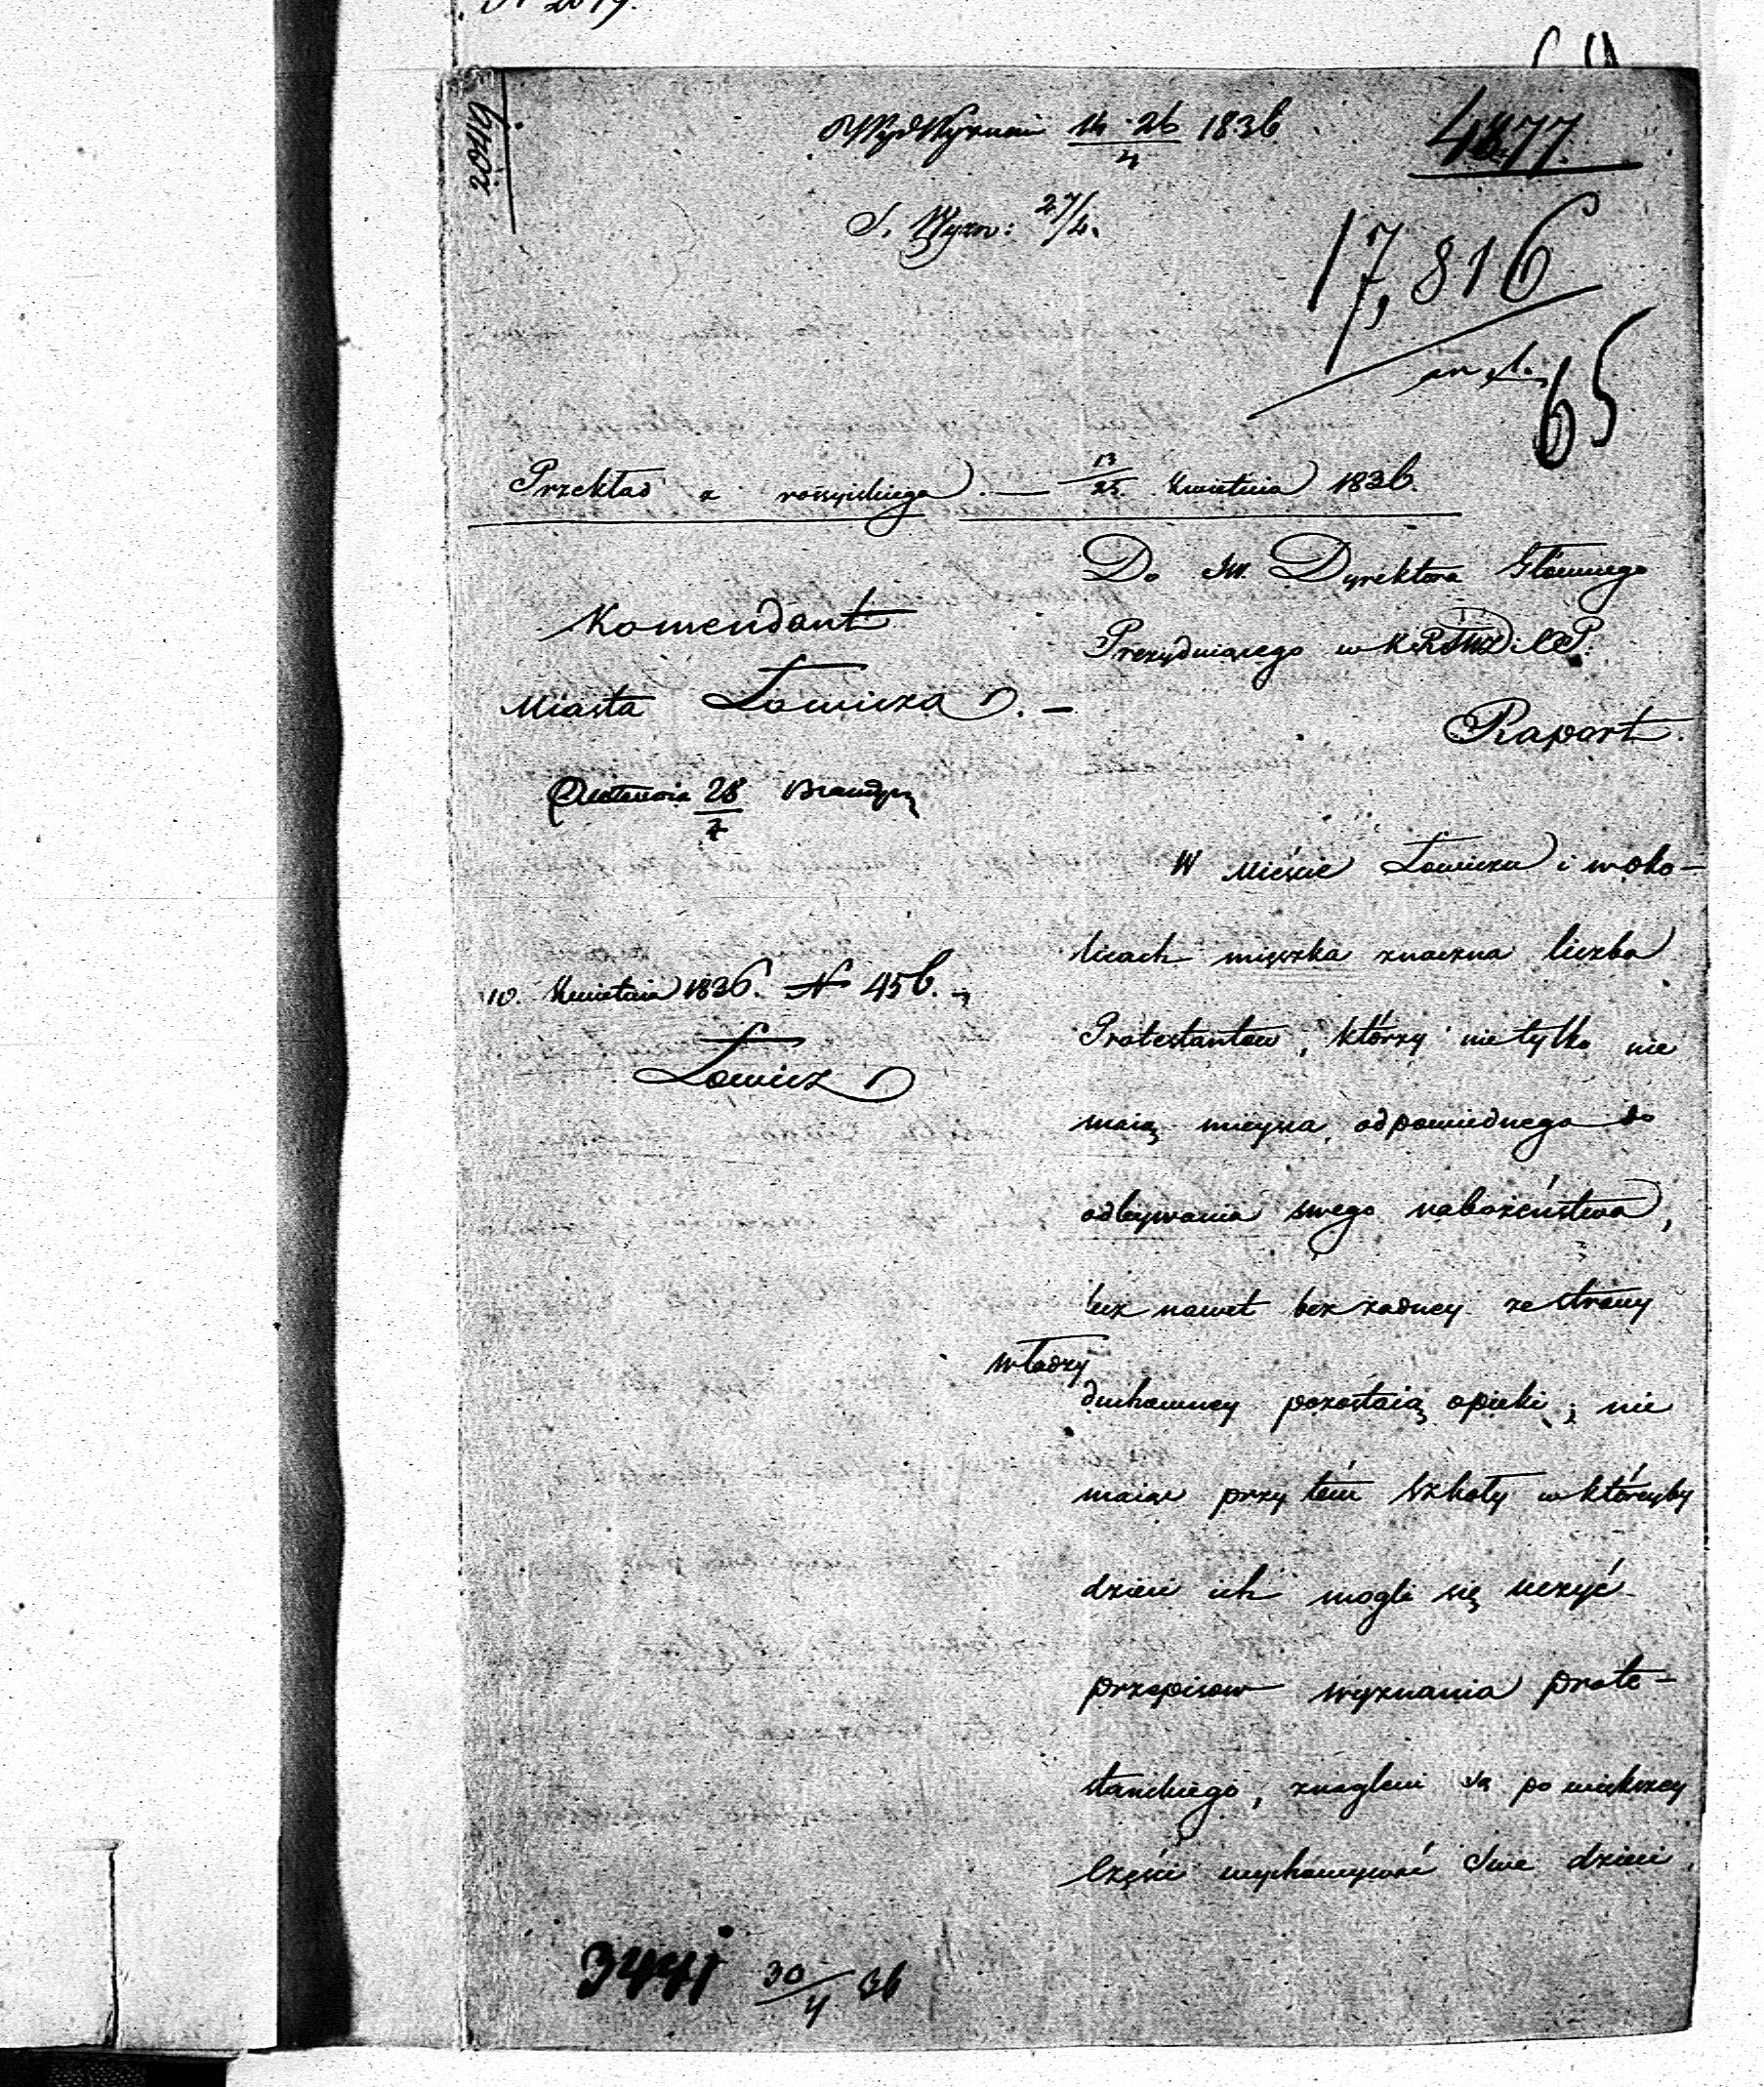 N 2019.
WydWyznań 14·26/4 1836
4877.
S. Wyzn: 27/4.
17,816
65
Przekład z rossyiskiego. — 13/25. Kwietnia 1836.
Komendant
Miasta Łowicza. —
28/4
10. Kwietnia 1836. N 456.
Łowicz
Do JW. Dyrektora Głównego
Prezyduiącego w K.R.S.W.D. i O.P.
Raport.
W Mieście Łowiczu i w oko-
licach mięszka znaczna liczba
Protestantow, którzy nie tylko nie
maią mieysca odpowiednego do
odbywania swego nabożeństwa,
lecz nawet bez żadney ze strony
władzy
duchowney pozostaią opieki; nie
maiąc przy tém szkoły w któreyby
dzieci ich mogli się uczyć
przepisow wyznania prote-
stanckiego, znagleni są po większey
części wychowywać swe dzieci
3441 30/4 36